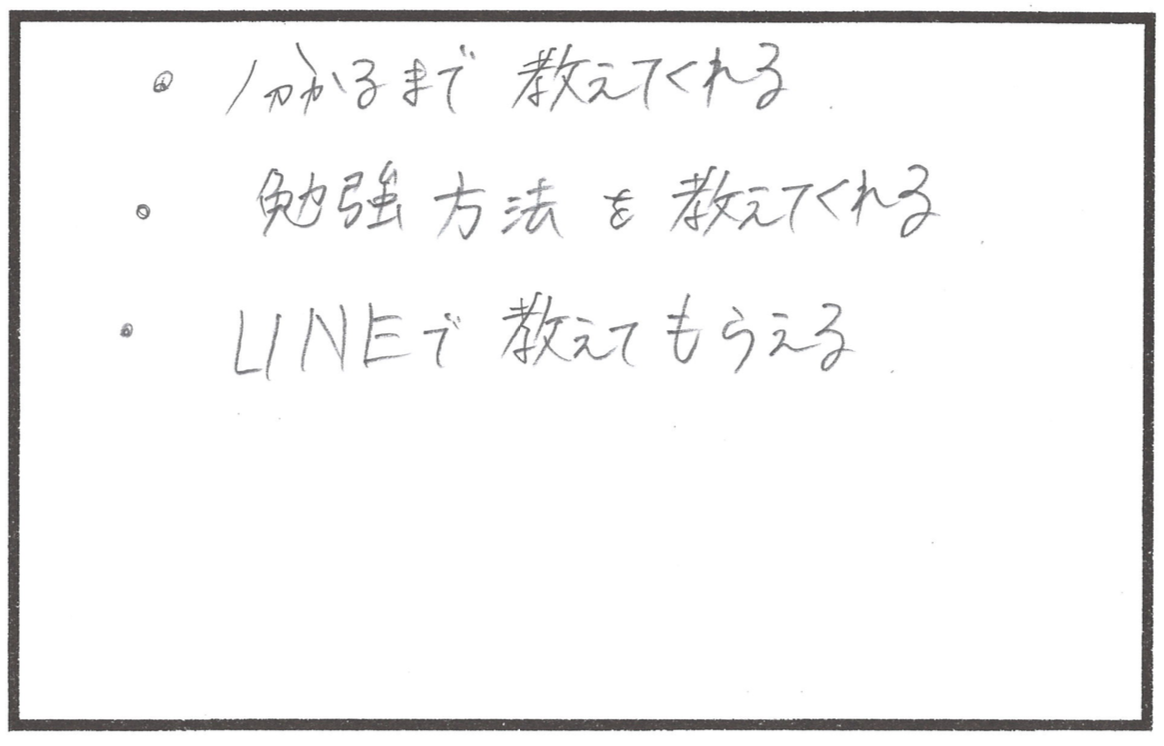 ・分かるまで教えてくれる
・勉強方法を教えてくれる
・LINEで教えてもらえる